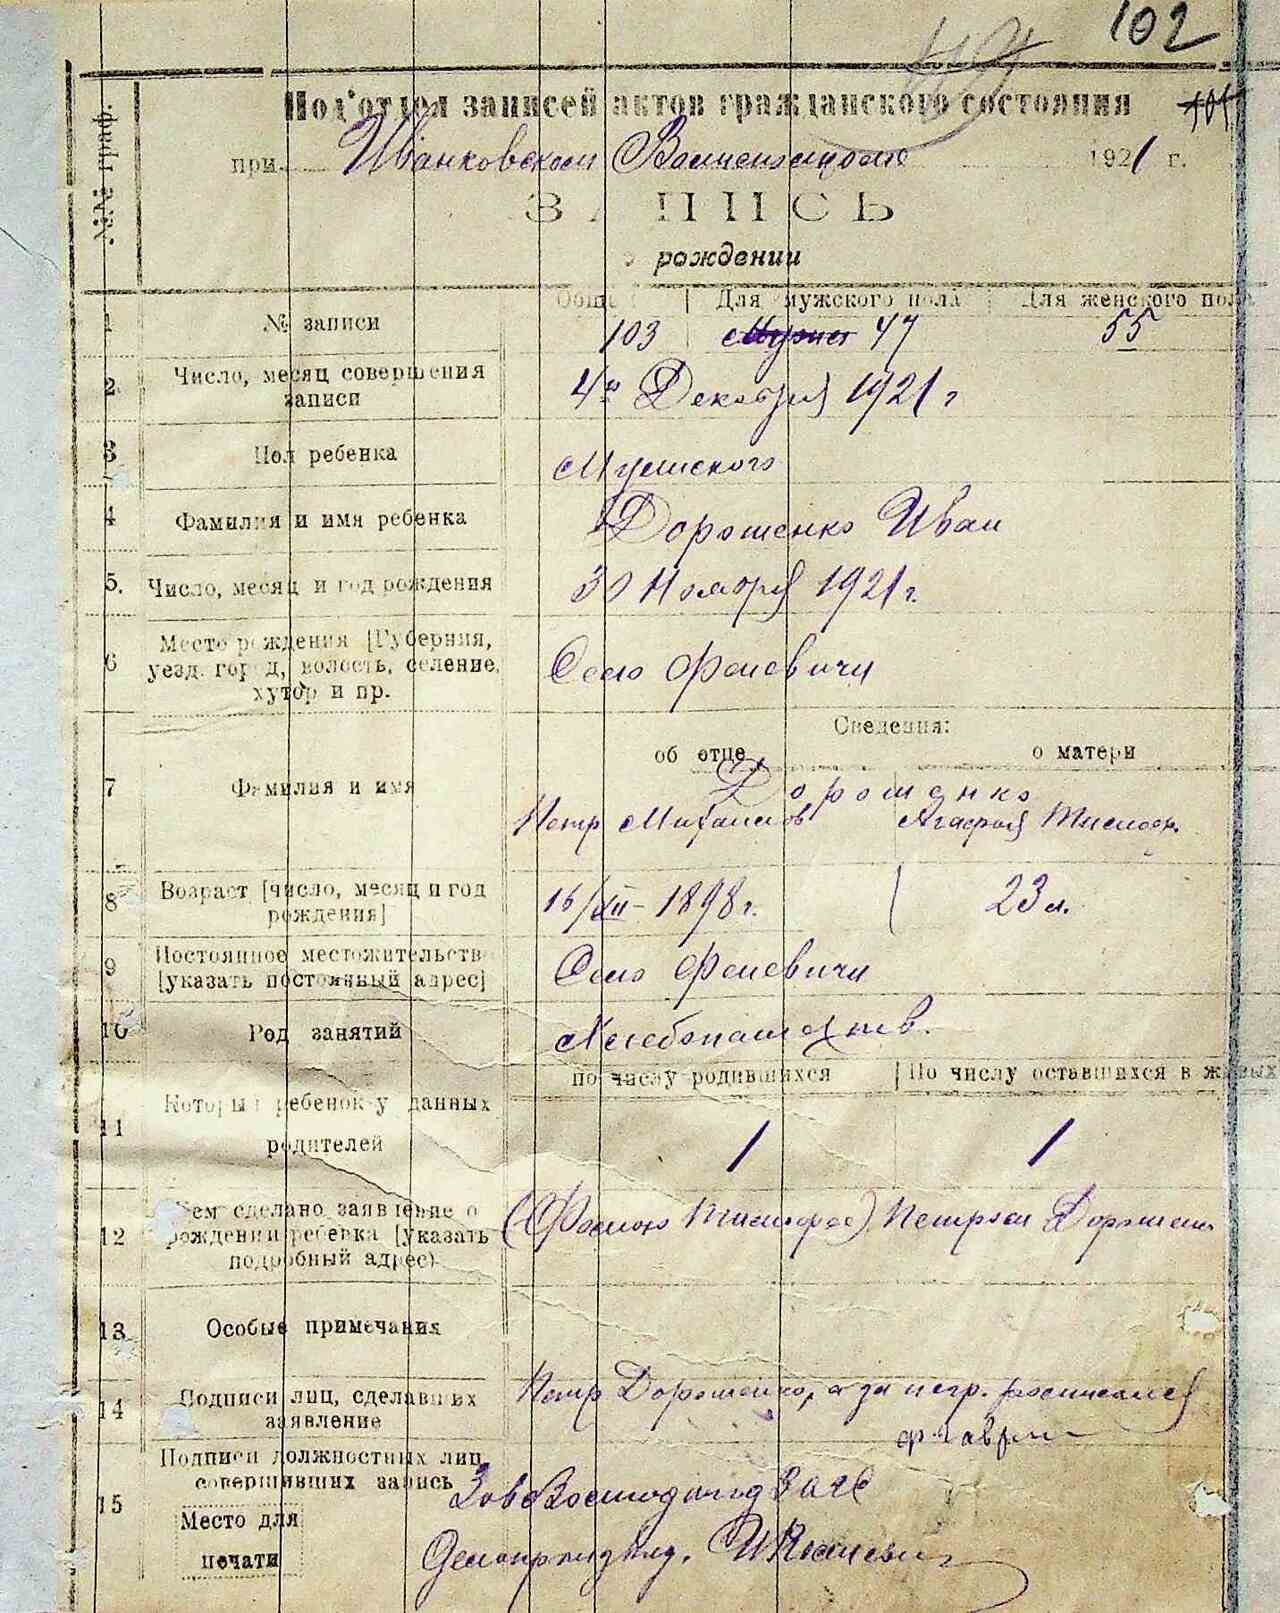 102
Под'отдел записей актов гражданского состояния
101
№№ граф.
при Иванковском Волисполкоме 1921 г.
ЗАПИСЬ
о рождении
Общий Для мужского пола Для женского пола
1 № записи 103 47 55
2 Число, месяц совершения записи 4го Декабря 1921 г
3 Пол ребенка Мужского
4 Фамилия и имя ребенка Дорошенко Иван
5. Число, месяц и год рождения 30 Ноября 1921 г.
6 Место рождения [Губерния, уезд, город, волость, селение, хутор и пр. Село Феневичи
Сведения:
об отце о матери
Дорошенко
7 Фамилия и имя Петр Михайлов Агафия
8 Возраст [число, месяц и год рождения] 16/XII - 1898 г. 23 л.
9 Постоянное местожительство [указать постоянный адрес] Село Феневичи
10 Род занятий Хлебопашеств.
по числу родившихся По числу оставшихся в живых
11 Который ребенок у данных родителей 1 1
12 Кем сделано заявление о рождении ребенка [указать подробный адрес) Петром Дорошенк
13 Особые примечания
14 Подписи лиц, сделавших заявление Петр Дорошенко, а за негр. росписался
15 Подписи должностных лиц, совершивших запись
Место для
печати